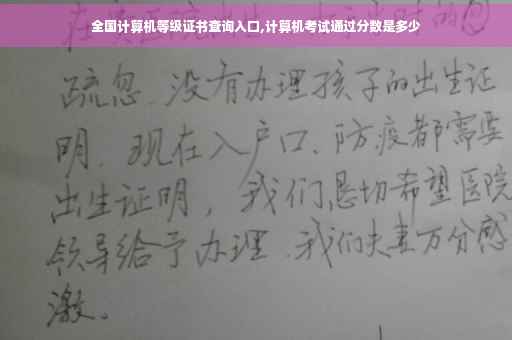 全国计算机等级证书查询入口,计算机考试通过分数是多少
疏忽、没有办理孩子的出生证
明、现在入户口、防疫都需要
出生证明，我们恳切希望医院
领导给予办理、我们夫妻万分感
激。